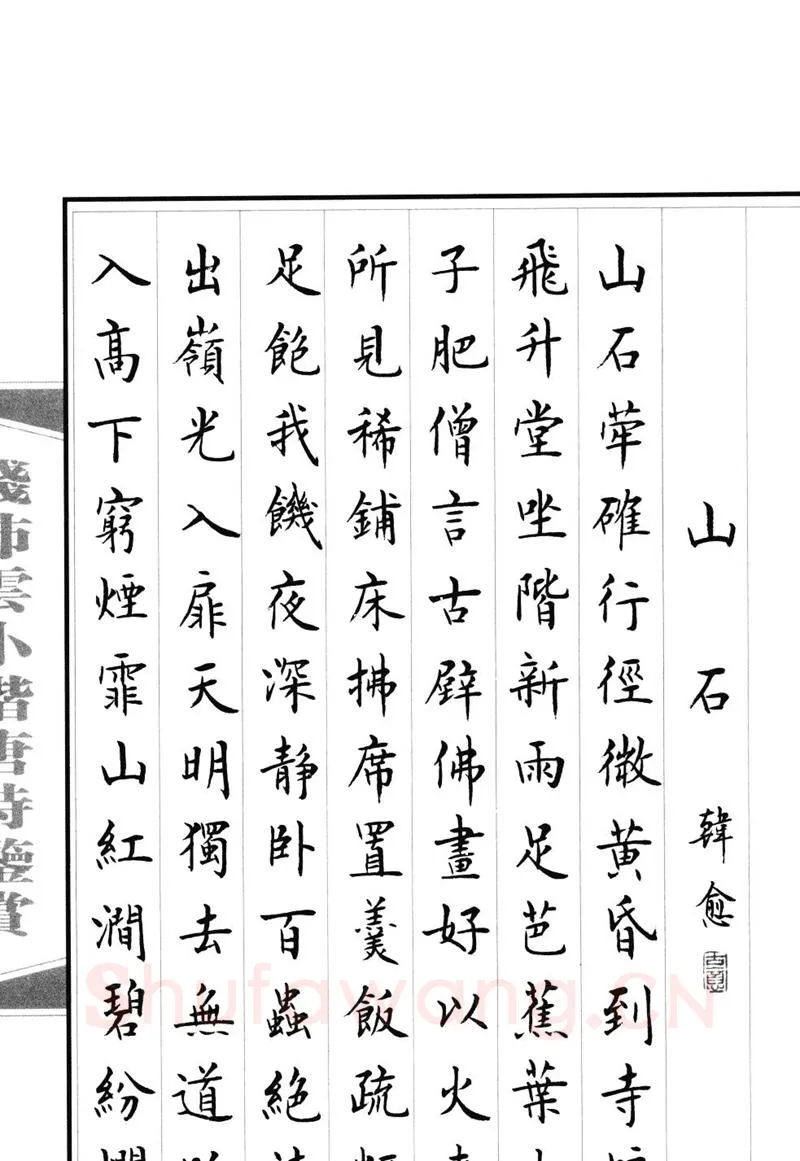 山石 韓愈
山石荦確行徑微黃昏到寺
飛升堂坐階新雨足芭蕉葉
子肥僧言古壁佛畫好以火
所見稀鋪床拂席置羹飯疏
足飽我饑夜深靜卧百蟲絕
出嶺光入扉天明獨去無道
入高下窮煙霏山紅澗碧紛
錢沛雲小楷唐詩鑒賞
Shufawang.CN